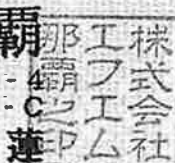 株式会社
エフエム
那覇之印
覇
4
C
蓮